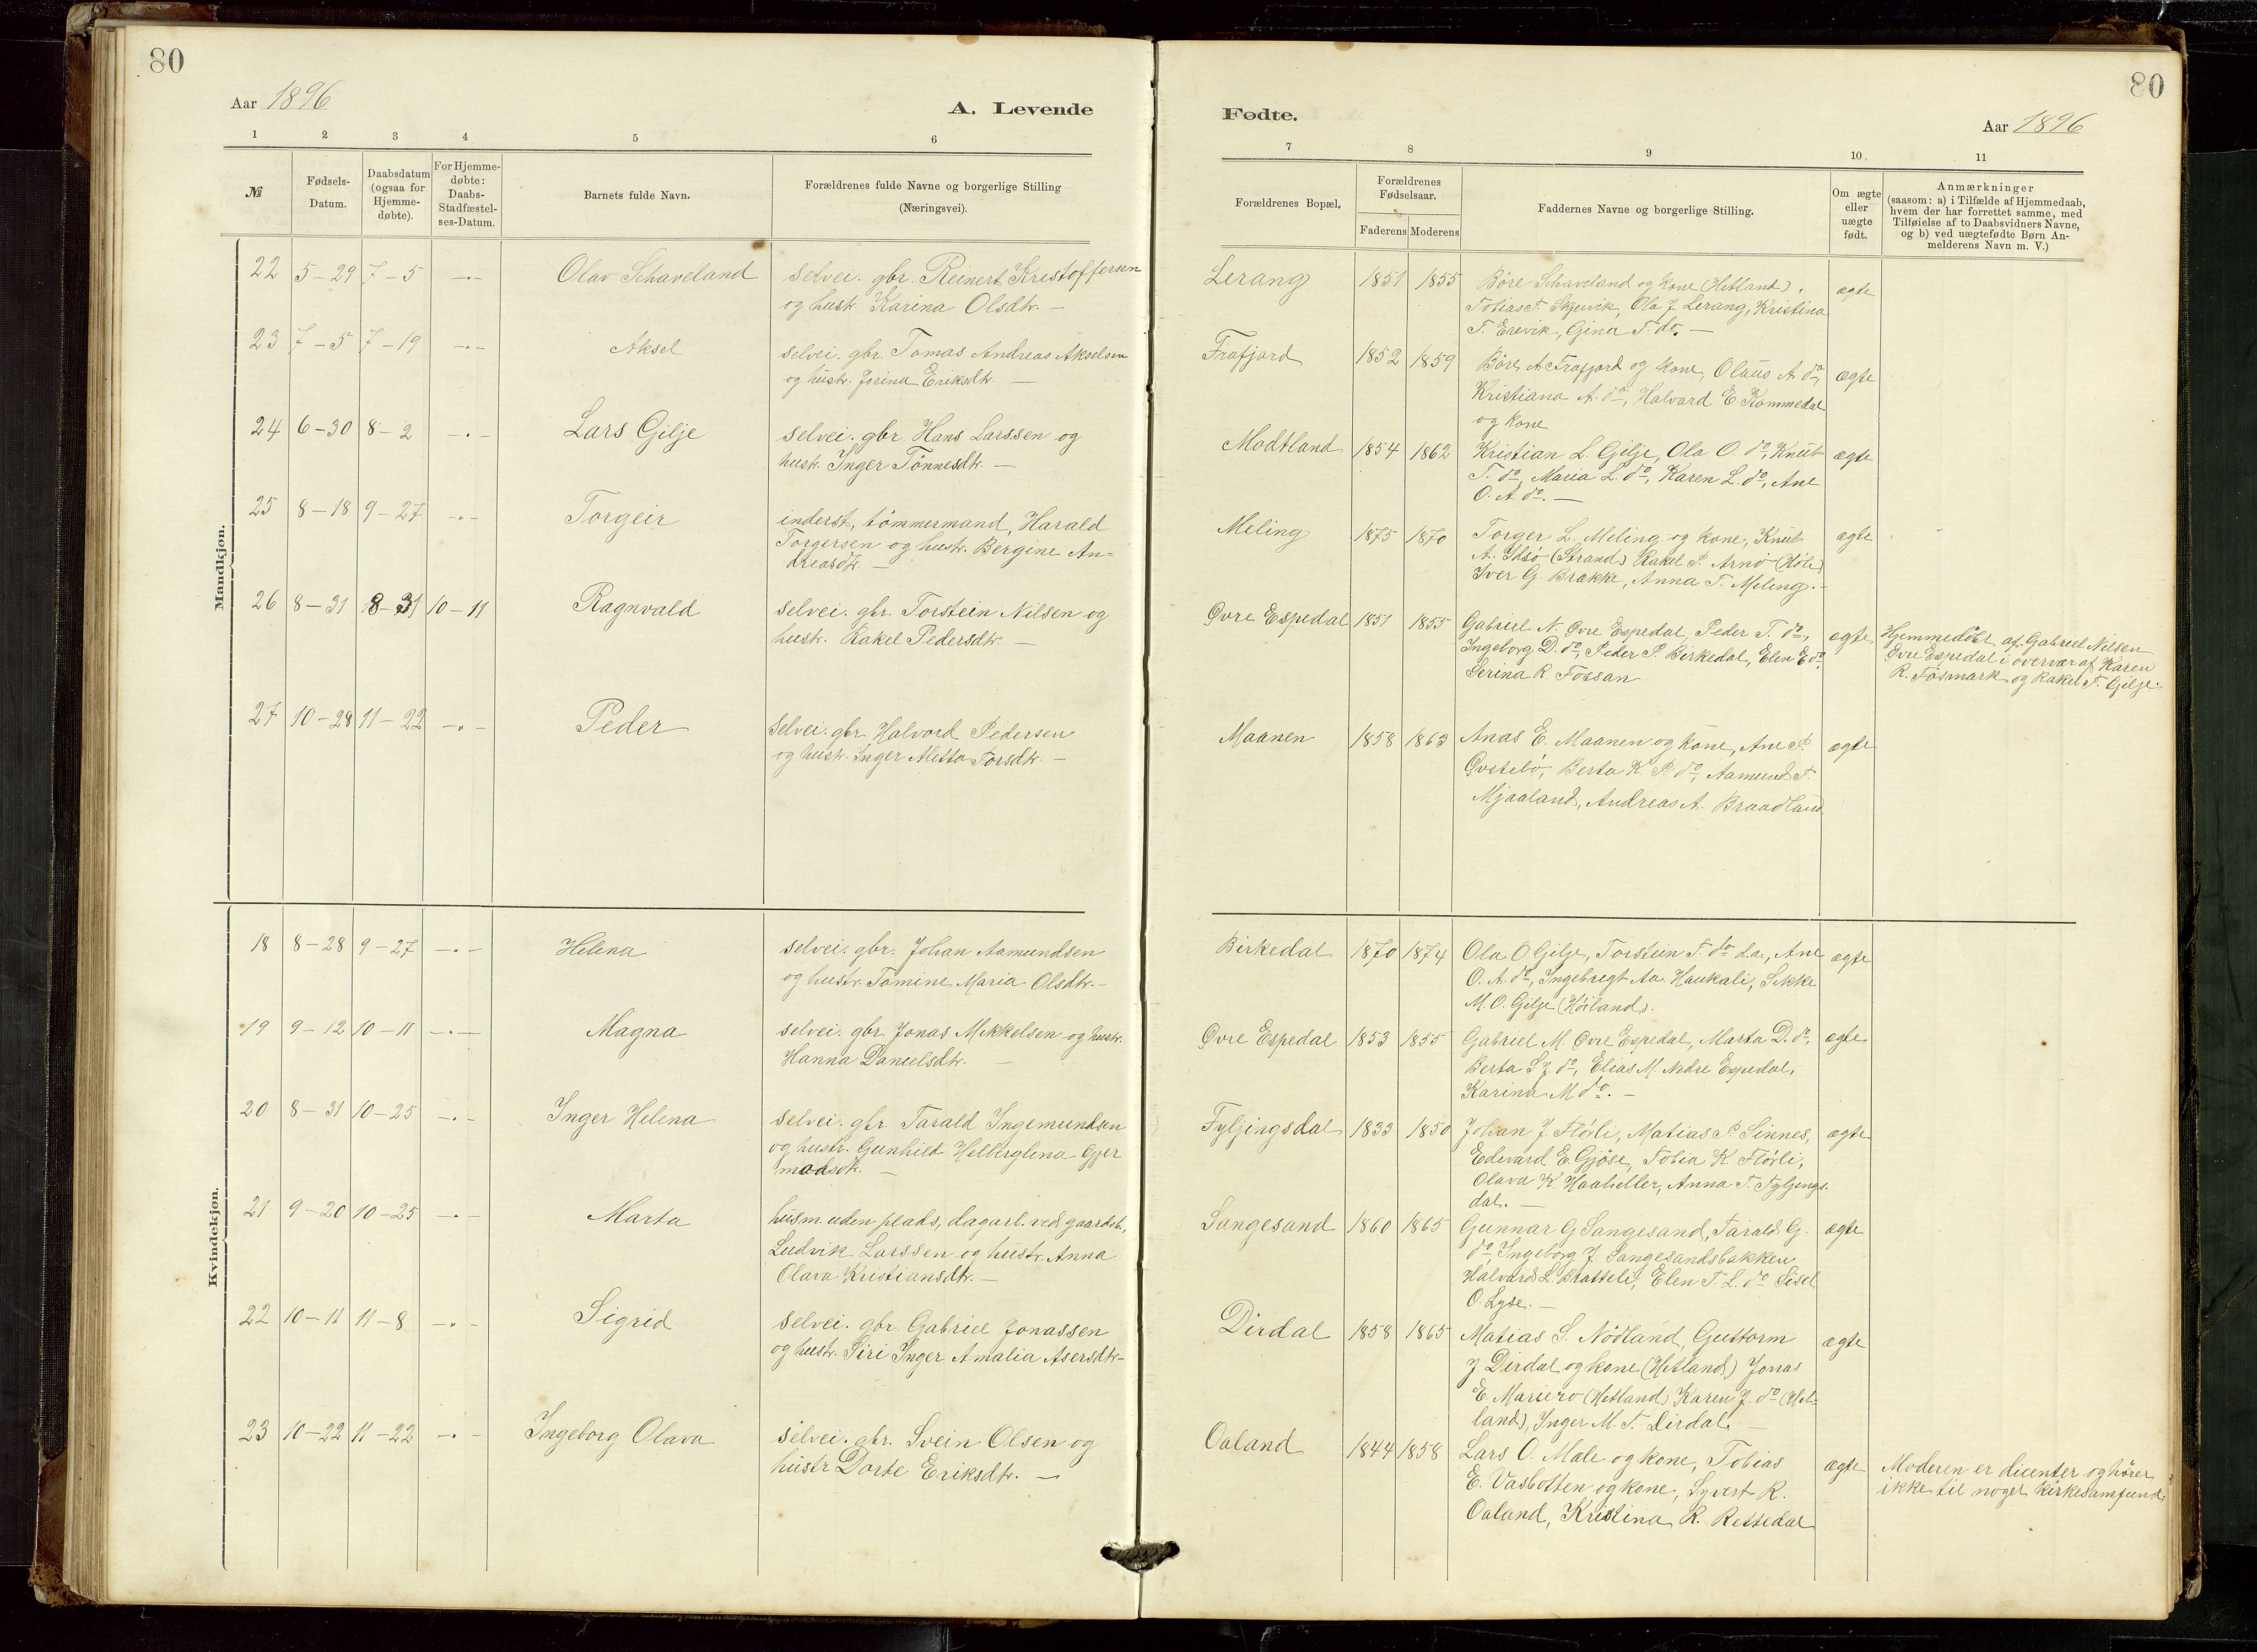 80
80
Aar 1896
A. Levende
Fødte.
Aar 1896
1 2 3 4 5 6
7 8 9 10. 11
№
Fødsels-
Datum.
Daabsdatum
(ogsaa for
Hjemme-
døbte).
For Hjemme-
døbte:
Daabs-
Stadfæstel-
ses-Datum.
Barnets fulde Navn.
Forældrenes fulde Navne og borgerlige Stilling
(Næringsvei).
Forældrenes Bopæl.
Forældrenes
Fødselsaar.
Faderens Moderens
Faddernes Navne og borgerlige Stilling.
Om ægte
eller
uægte
født.
Anmærkninger
(saasom: a) i Tilfælde af Hjemmedaab,
hvem der har forrettet samme, med
Tilføielse af to Daabsvidners Navne,
og b) ved uægtefødte Børn An-
melderens Navn m. V.)
Mandkjøn.
22 5-29 7-5 -"- Olav Schaveland
selvei. gbr. Reinert Kristoffersen
og hustr. Karina Olsdtr. -
Lerang 1851 1855
Böre Schaveland og kone (Hetland).
Tobias T. Skjevik, Ola J. Lerang, Kristina
T. Erevik, Gina T. do. -
ægte
23 7-5 7-19 -"- Aksel
selvei. gbr. Tomas Andreas Akselsen
og hustr. Jorina Eriksdtr. -
Frafjord 1852 1859
Böre A. Frafjord og kone, Olaus A. do,
Kristiana A. do, Halvard E. Kommedal
og kone
ægte
24 6-30 8-2 -"- Lars Gilje
selvei. gbr. Hans Larssen og
hustr. Inger Tönnesdtr. -
Modtland 1854 1862
Kristian L. Gilje, Ola O. do, Knut
T. do, Maria L. do, Karen L. do, Ane
O. A. do. -
ægte
25 8-18 9-27 -"- Torgeir
inderst, tömmermand, Harald
Torgersen og hustr. Bergine An=
dreasdtr. -
Meling 1875 1870
Torger L. Meling og kone, Knut
A. Idsö (Strand) Rakel P. Arnö (Höle)
Iver G. Brække, Anna T. Meling. -
ægte
26 8-31 8-31 10-11 Ragnvald
selvei. gbr. Torstein Nilsen og
hustr. Rakel Pedersdtr. -
Øvre Espedal 1851 1855
Gabriel N. Øvre Espedal, Peder T. do,
Ingeborg D. do, Peder P. Birkedal, Elen E. do
Serina R. Fossan
ægte
Hjemmedöbt af Gabriel Nilsen
Øvre Espedal i overvær af Karen
R. Fösmark og Rakel T. Gilje.
27 10-28 11-22 -"- Peder
Selvei. gbr. Halvord Pedersen
og hustr. Inger Aletta Torsdtr. -
Maanen 1858 1863
Anas E. Maanen og kone, Ane P.
Øvstebö, Berta K. P. do, Aamund T.
Mjaaland, Andreas A. Braadland
ægte
Kvindekjøn.
18 8-28 9-27 -"- Helena
selvei. gbr. Johan Aamundsen
og hustr. Tomine Maria Olsdtr. -
Birkedal 1870 1874
Ola O. Gilje, Torstein T. do d.a., Ane
O. A. do, Ingebregt Aa. Haukali, Sikke
M. O. Gilje (Höiland).
ægte
19 9-12 10-11 -"- Magna
selvei. gbr. Jonas Mikkelsen og hustr.
Hanna Danielsdtr. -
Øvre Espedal 1853 1855
Gabriel M. Øvre Espedal, Marta D. do,
Berta S. J. do, Elias M. Nedre Espedal,
Karina M do. -
ægte
20 8-31 10-25 -"- Inger Helena
selvei. gbr. Tarald Ingemundsen
og hustr. Gunhild Helberglena Gjer
modsdtr. -
Fyljingsdal 1833 1850
Johan J. Flörli, Matias P. Sinnes,
Edevard E. Gjöse, Tobia K. Flörli,
Olava K. Haaheller, Anna T. Fyljings-
dal. -
ægte
21 9-20 10-25 -"- Marta
husm. uden plads, dagarb. ved gaardsb.,
Ludvik Larssen og hustr. Anna
Olara Kristiansdtr. -
Sangesand 1860 1865
Gunnar G Sangesand, Tarald G.
do, Ingeborg J. Sangesandsbakken
Halvard L. Bratteli, Elen T. L. do Sisel
O. Lyse. -
ægte
22 10-11 11-8 -"- Sigrid
selvei. gbr. Gabriel Jonassen
og hustr. Siri Inger Amalia Asersdtr-
Dirdal 1858 1865
Matias S. Nödland, Guttorm
J. Dirdal og kone (Hetland) Jonas
E. Mariero (Hetland) Karen J. do (Het-
land), Inger M. T. Dirdal. -
ægte
23 10-22 11-22 -"- Ingeborg Olava
selvei. gbr. Svein Olsen og
hustr Dorte Eriksdtr. -
Oaland 1844 1858
Lars O. Mæle og kone, Tobias
E. Vasbotten og kone, Syvert R.
Oaland, Kristina R. Rettedal
ægte
Moderen er dicenter og hörer
ikke til noget kirkesamfund.